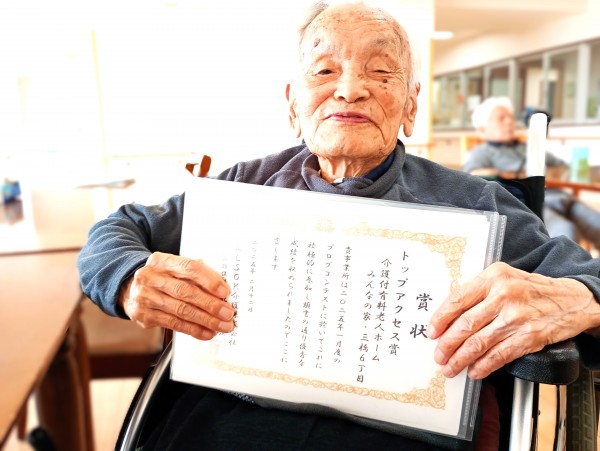 賞状
トップアクセス賞
介護付有料老人ホーム
みんなの家・三橋6丁目
貴事業所は二〇二五年一月度の
ブログコンテストに於いてこれに
積極的に参加し頭書の通り優秀な
成績を収められましたのでここに
賞します
二〇二五年 二月十二日